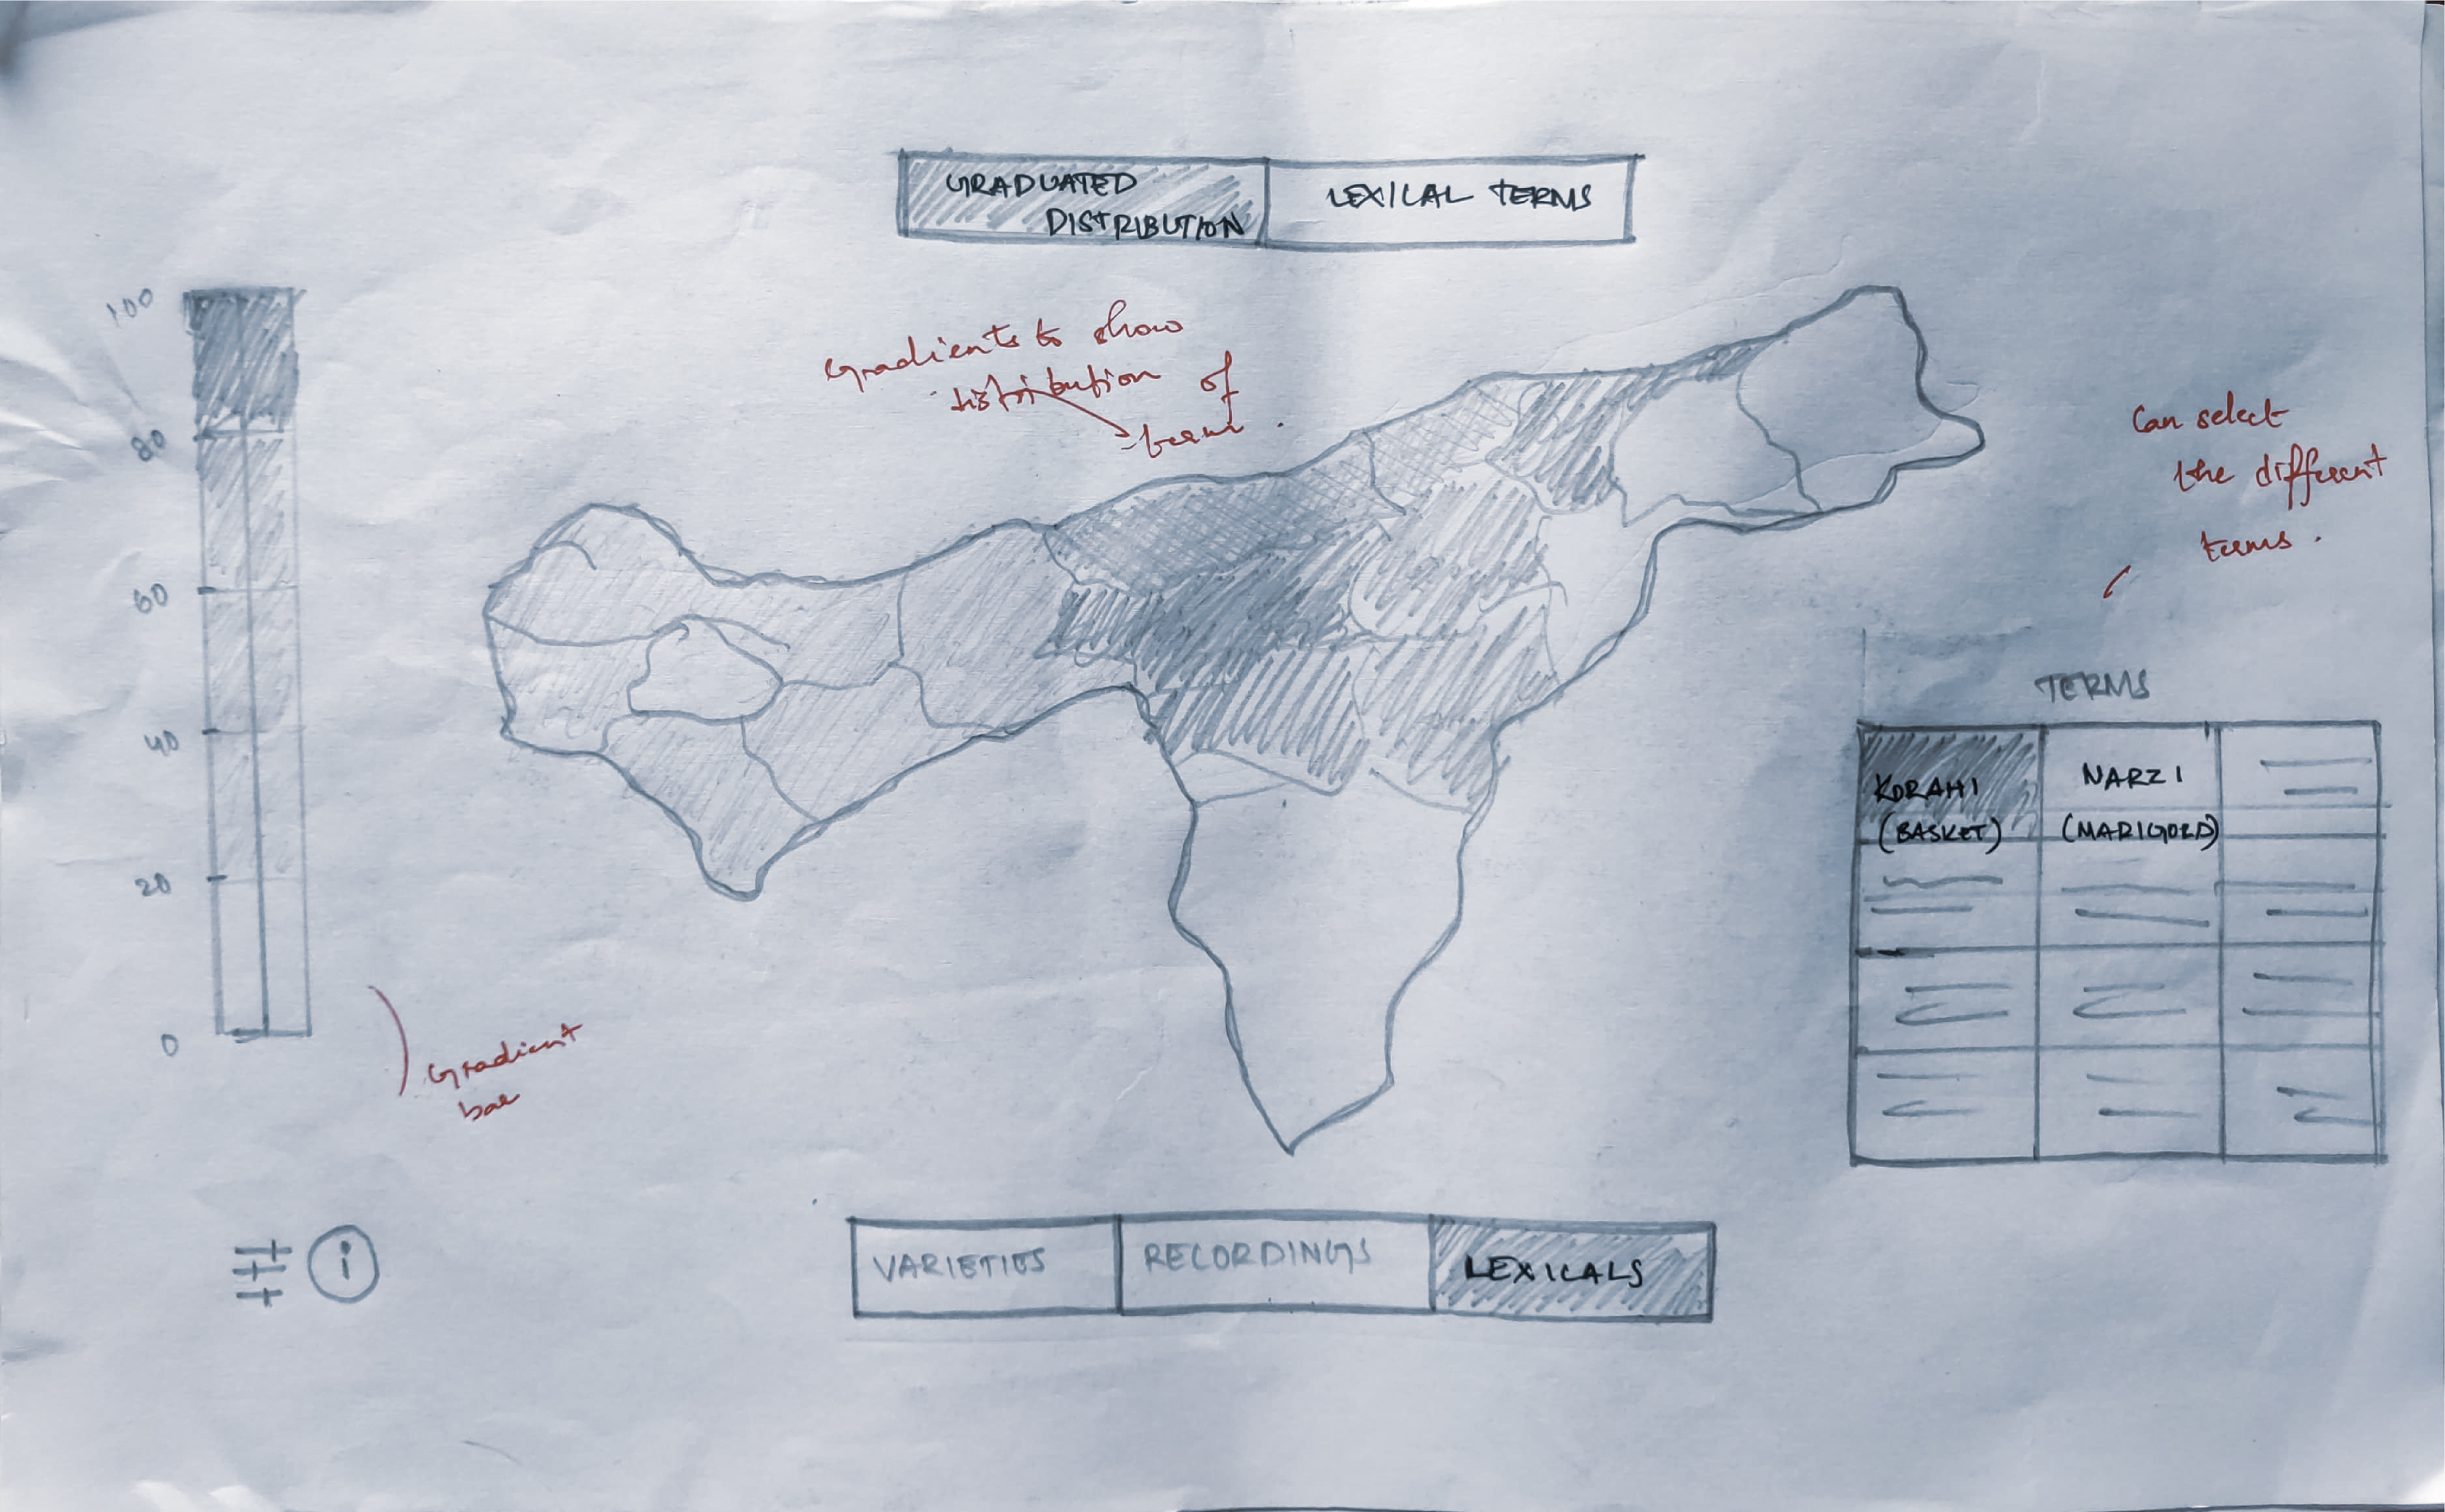 GRADUATED
DISTRIBUTION
LEXICAL TERMS
100
80
60
40
20
0
Gradients to show
distribution of
term.
Can select
the different
terms.
Gradient
bar
TERMS
KORAHI
(BASKET)
NARZI
(MARIGOLD)
i
VARIETIES
RECORDINGS
LEXICALS